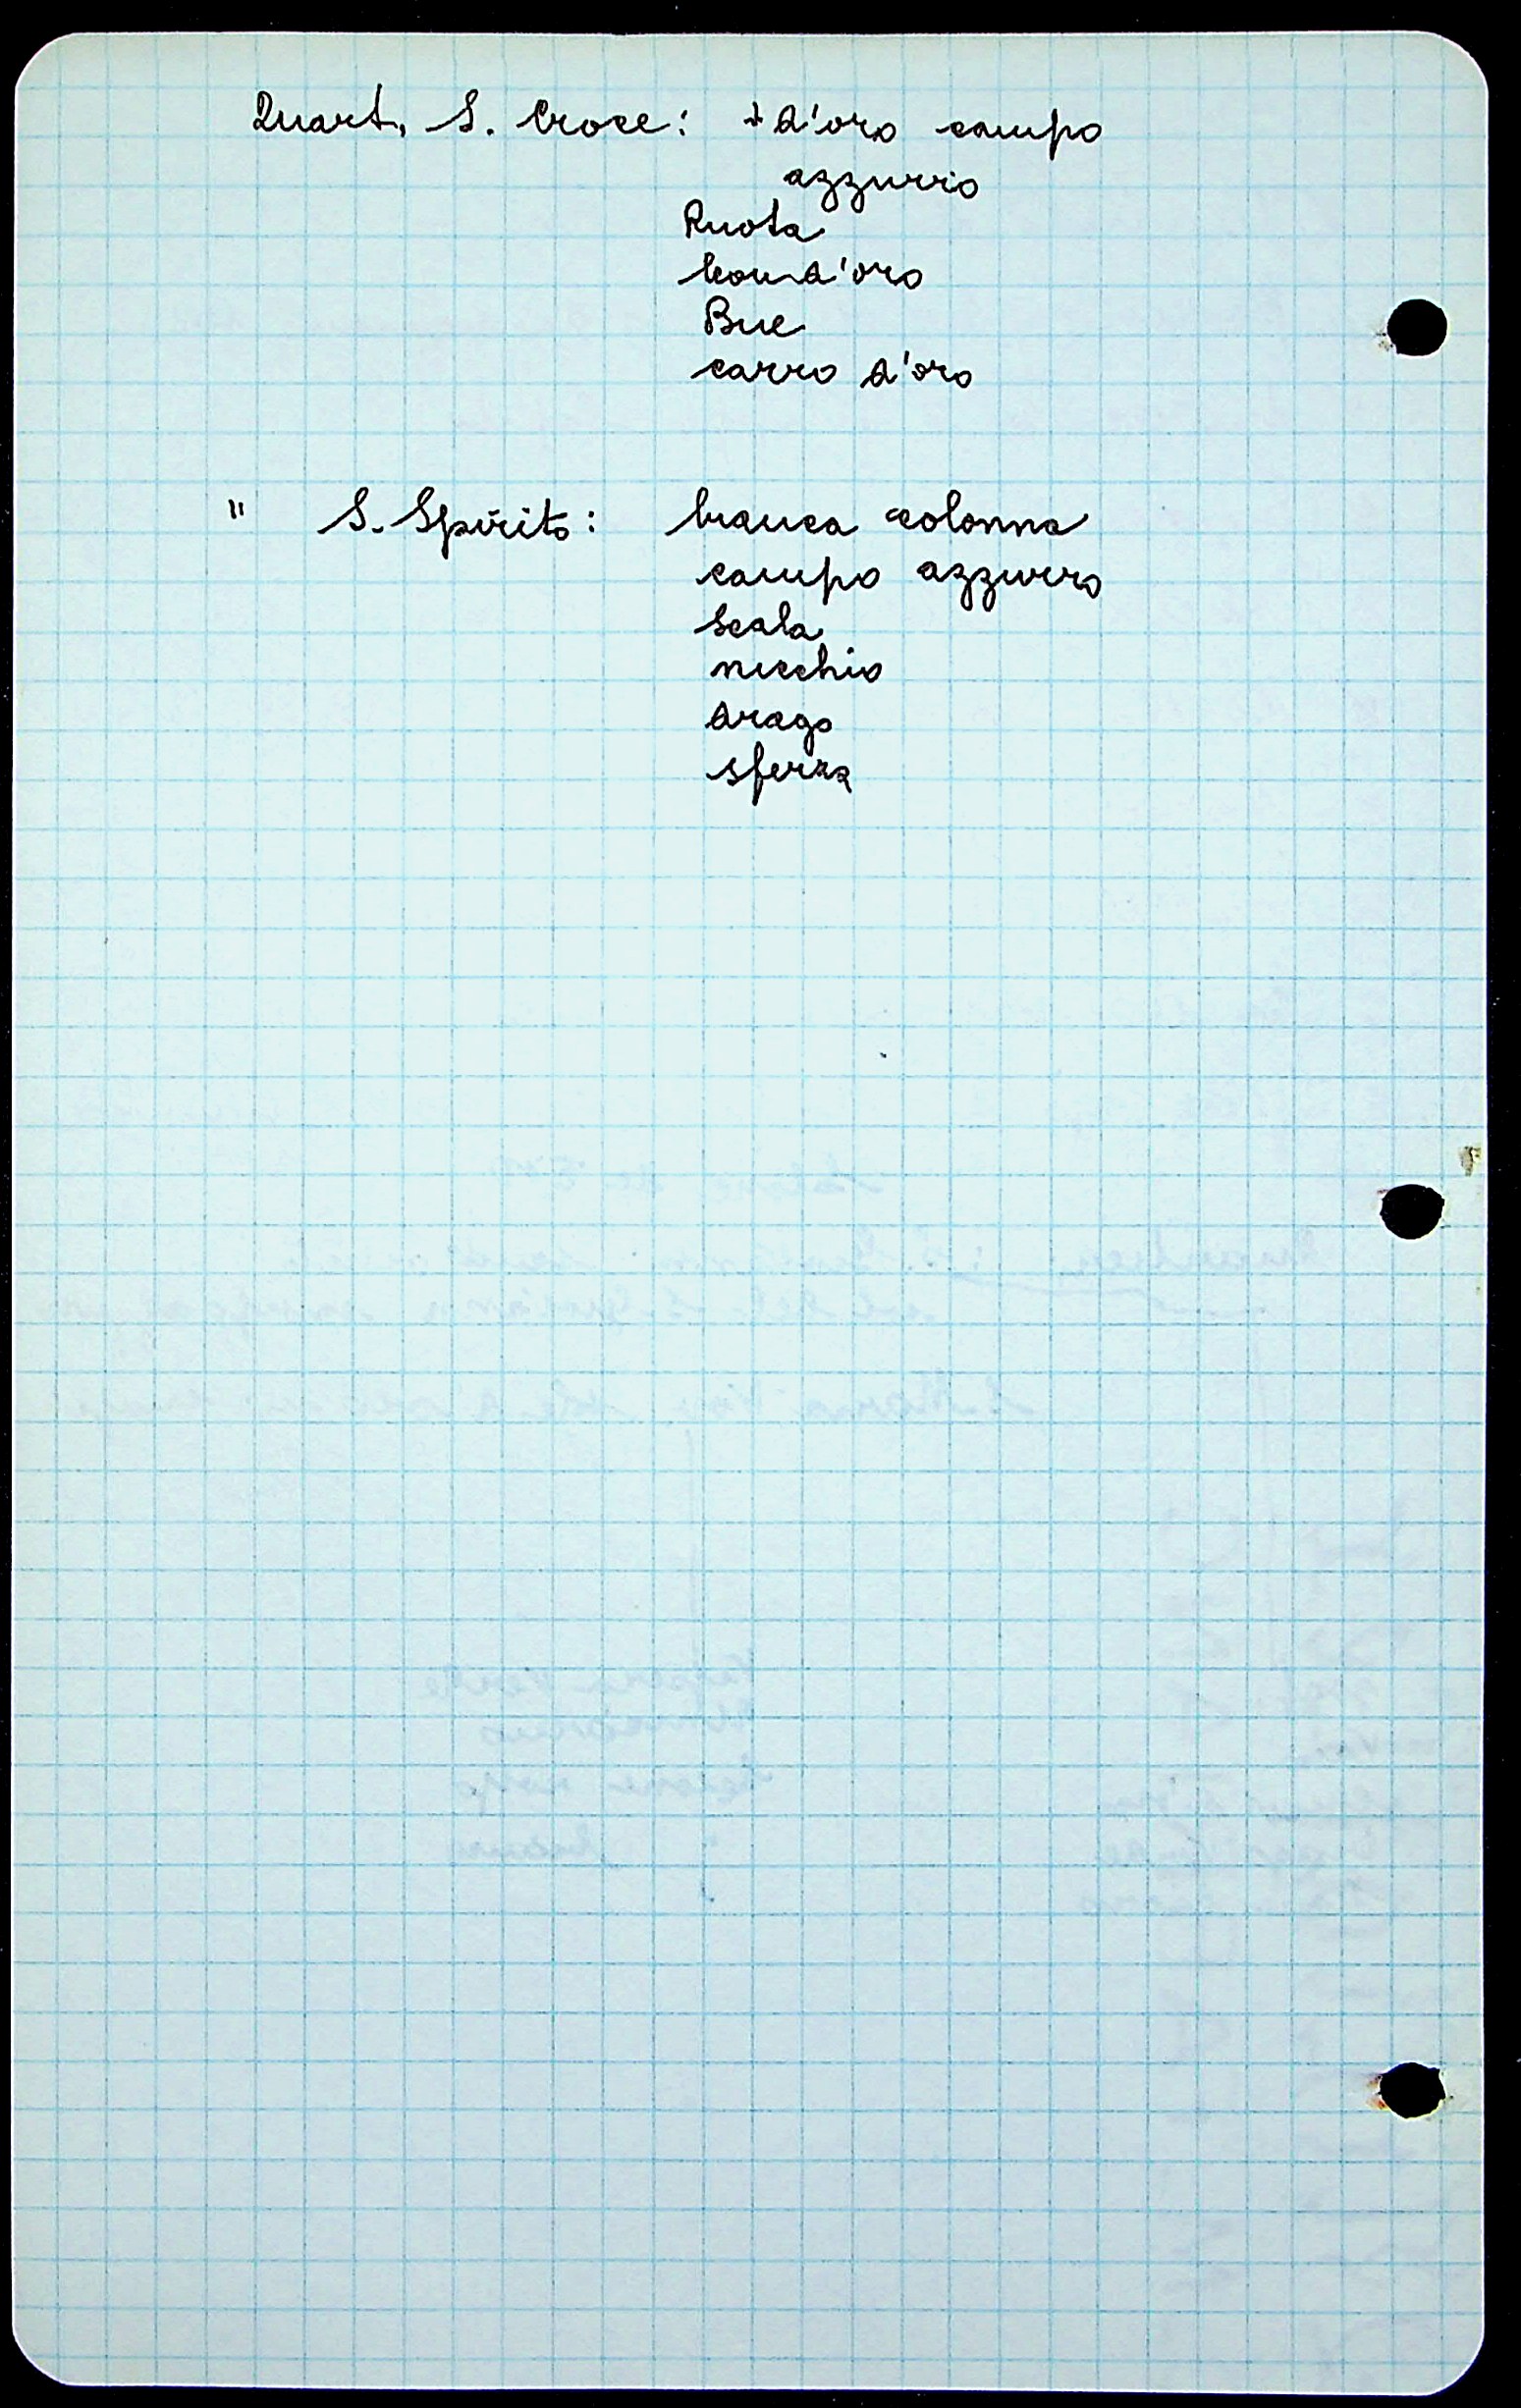 Quart. S. Croce: + d'oro campo
azzurrio
Ruota
leon d'oro
Bue
carro d'oro
" S. Spirito: bianca colonna
campo azzurro
Scala
nicchio
drago
sferza